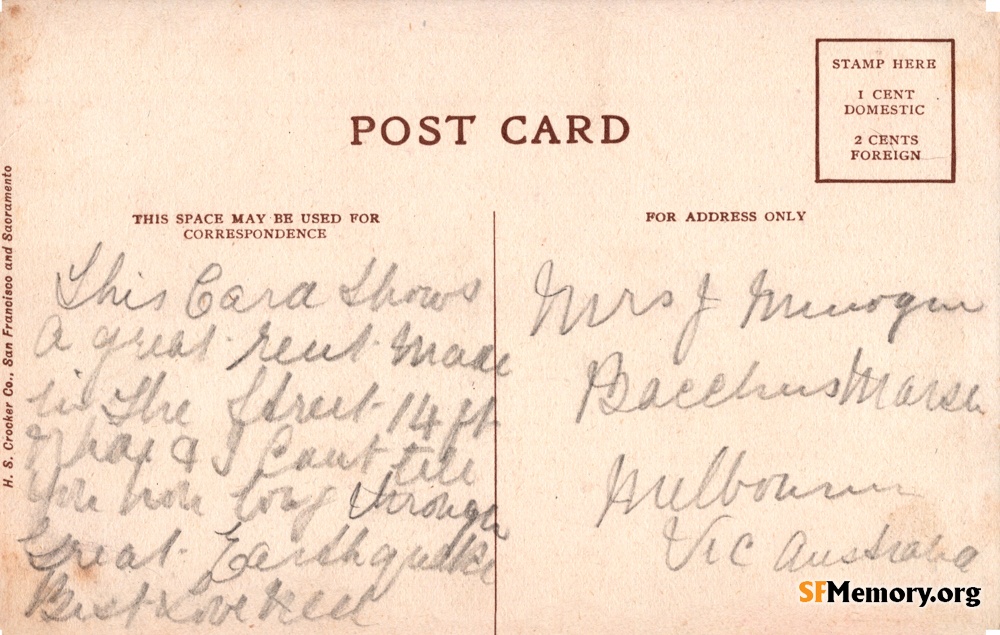 POST CARD
STAMP HERE
1 CENT
DOMESTIC
2 CENTS
FOREIGN
THIS SPACE MAY BE USED FOR
CORRESPONDENCE
FOR ADDRESS ONLY
H. S. Crocker Co., San Francisco and Sacramento
This Card Shows
A great rent made
in The Street 14 ft
& I Cant tell
you how long through
Great Earthquake
Best Love Nell
Mrs J Minogue
Bacchus Marsh
Melbourne
Vic Australia
SFMemory.org